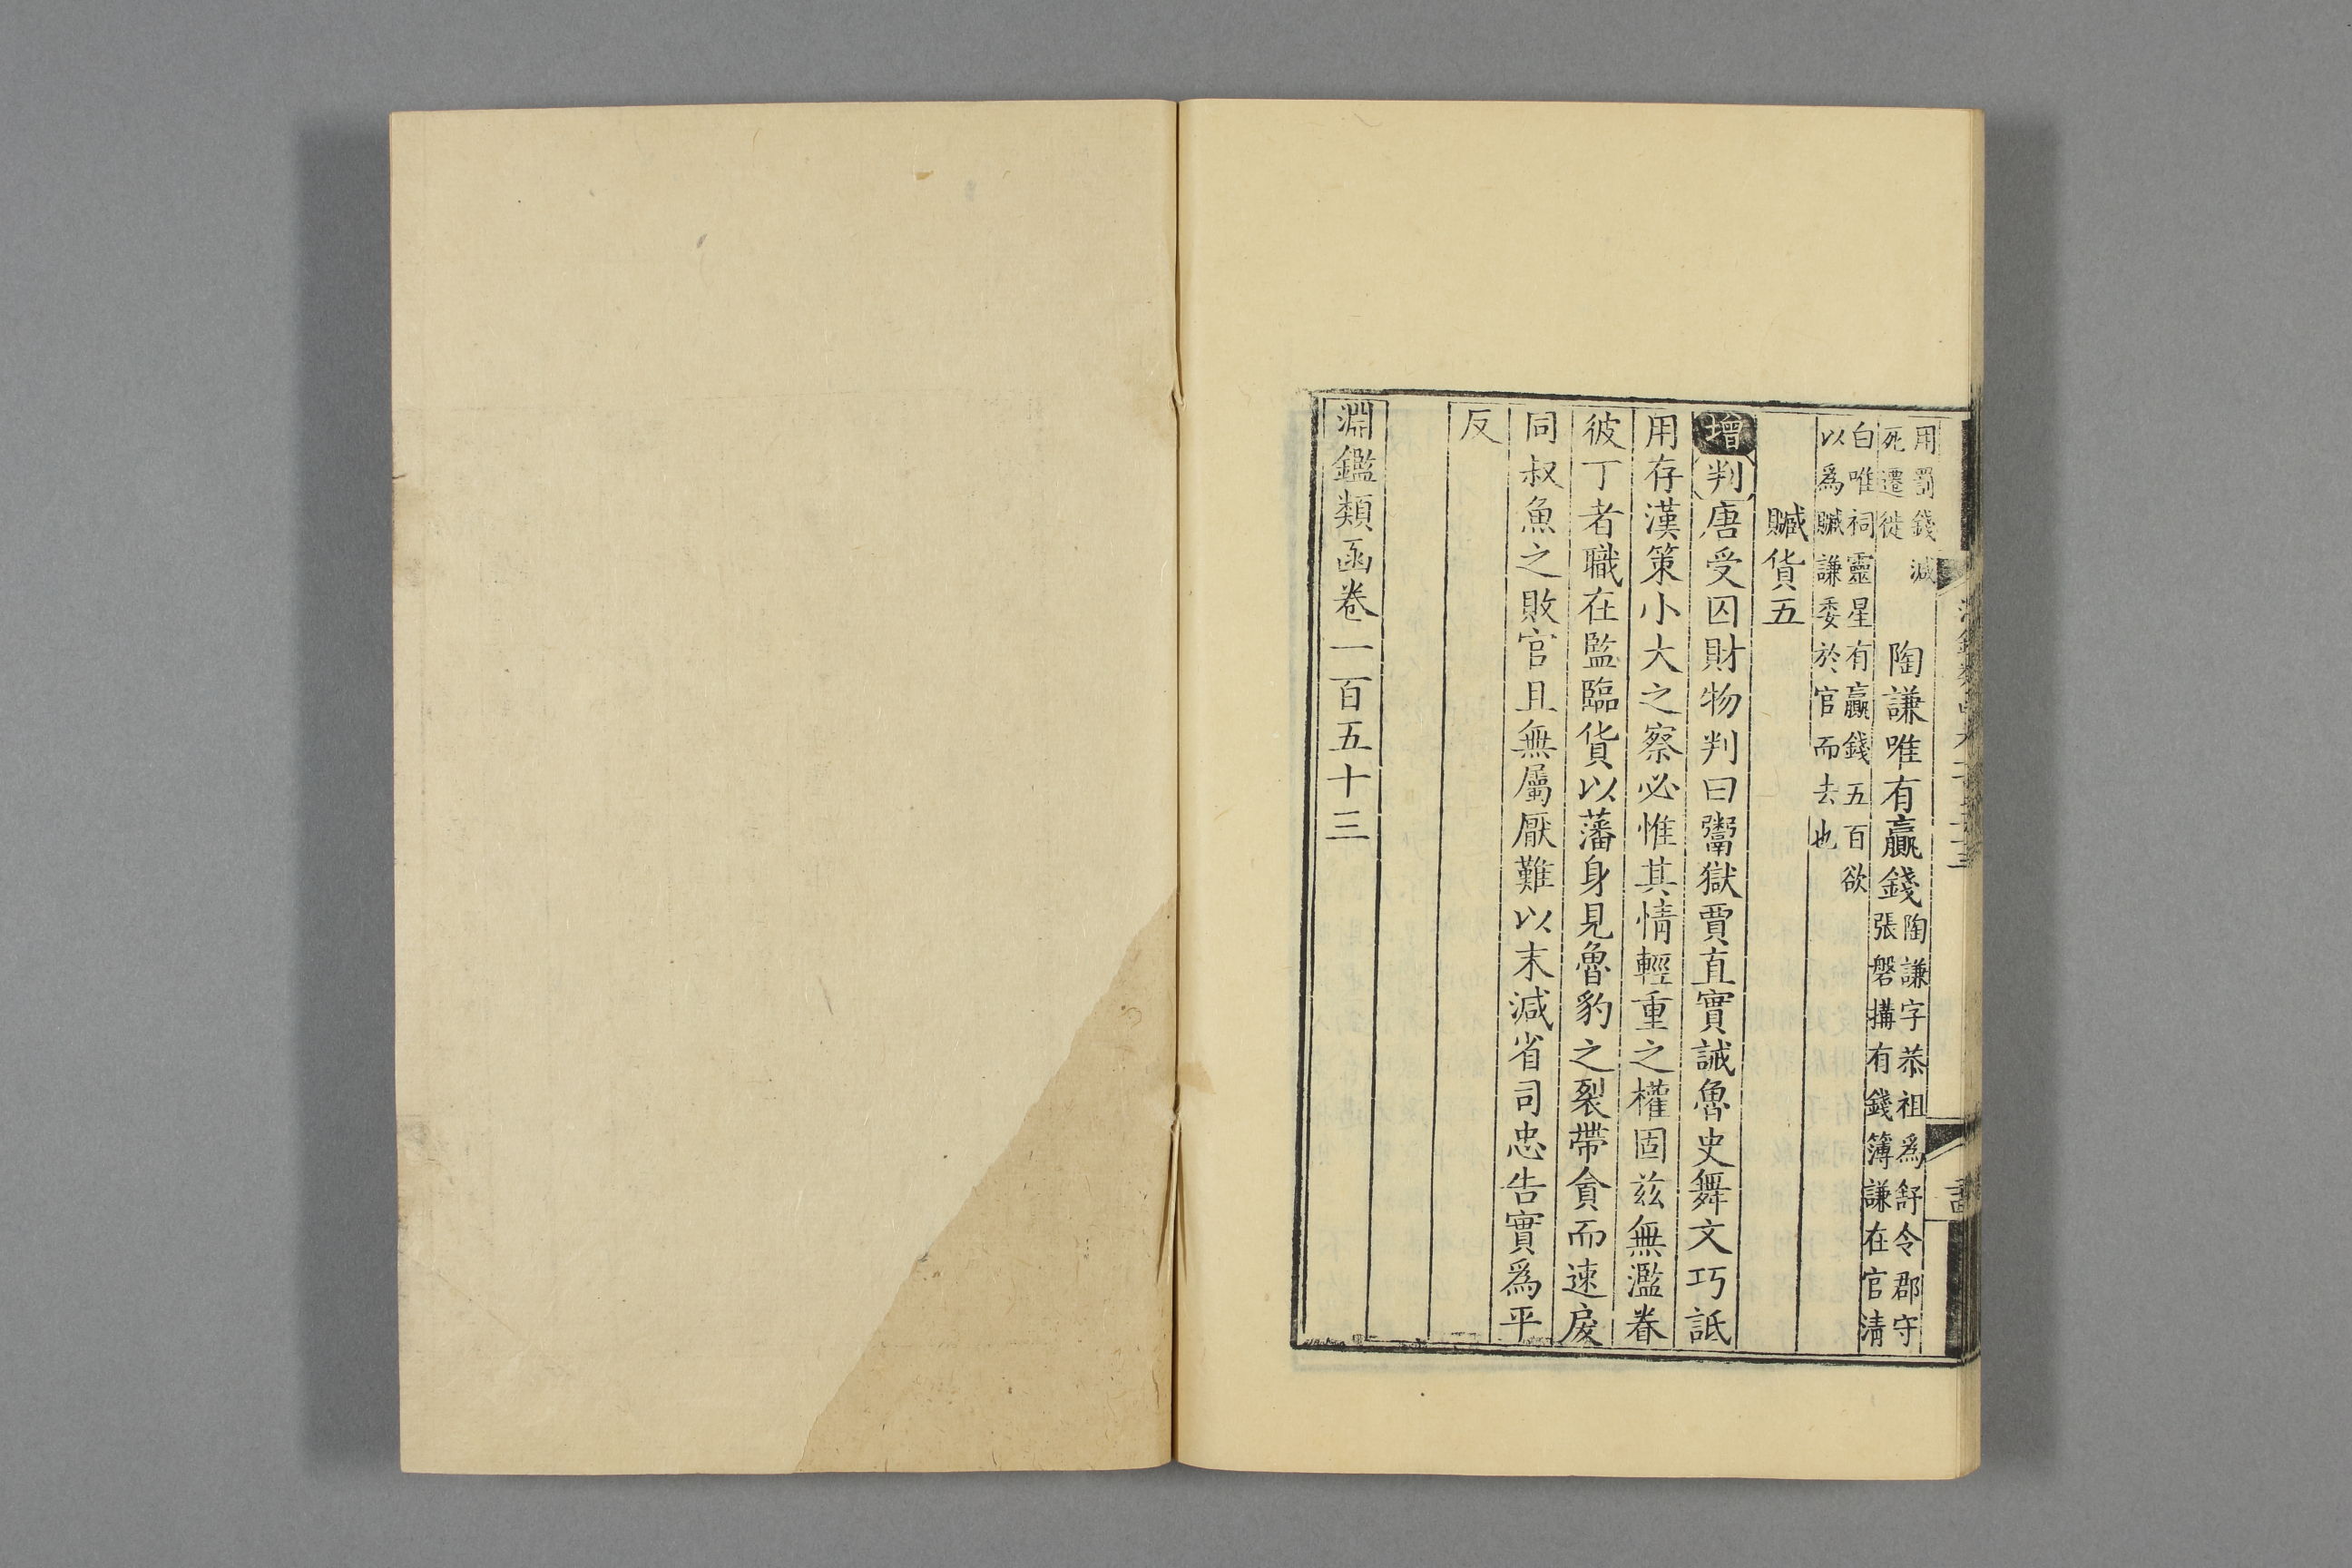 用罰錢減
死遷徙
陶謙唯有贏錢
陶謙字恭祖爲舒令郡守
張磐搆有錢簿謙在官清
白唯祠靈星有贏錢五百欲
以爲贓謙委於官而去也
贓貨五
增判唐受囚財物判曰鬻獄賈直實誡魯史舞文巧詆
用存漢策小大之察必惟其情輕重之權固茲無濫眷
彼丁者職在監臨貨以藩身見魯豹之裂帶貪而速戾
同叔魚之敗官且無屬厭難以末減省司忠告實爲平
反
淵鑑類函卷一百五十三